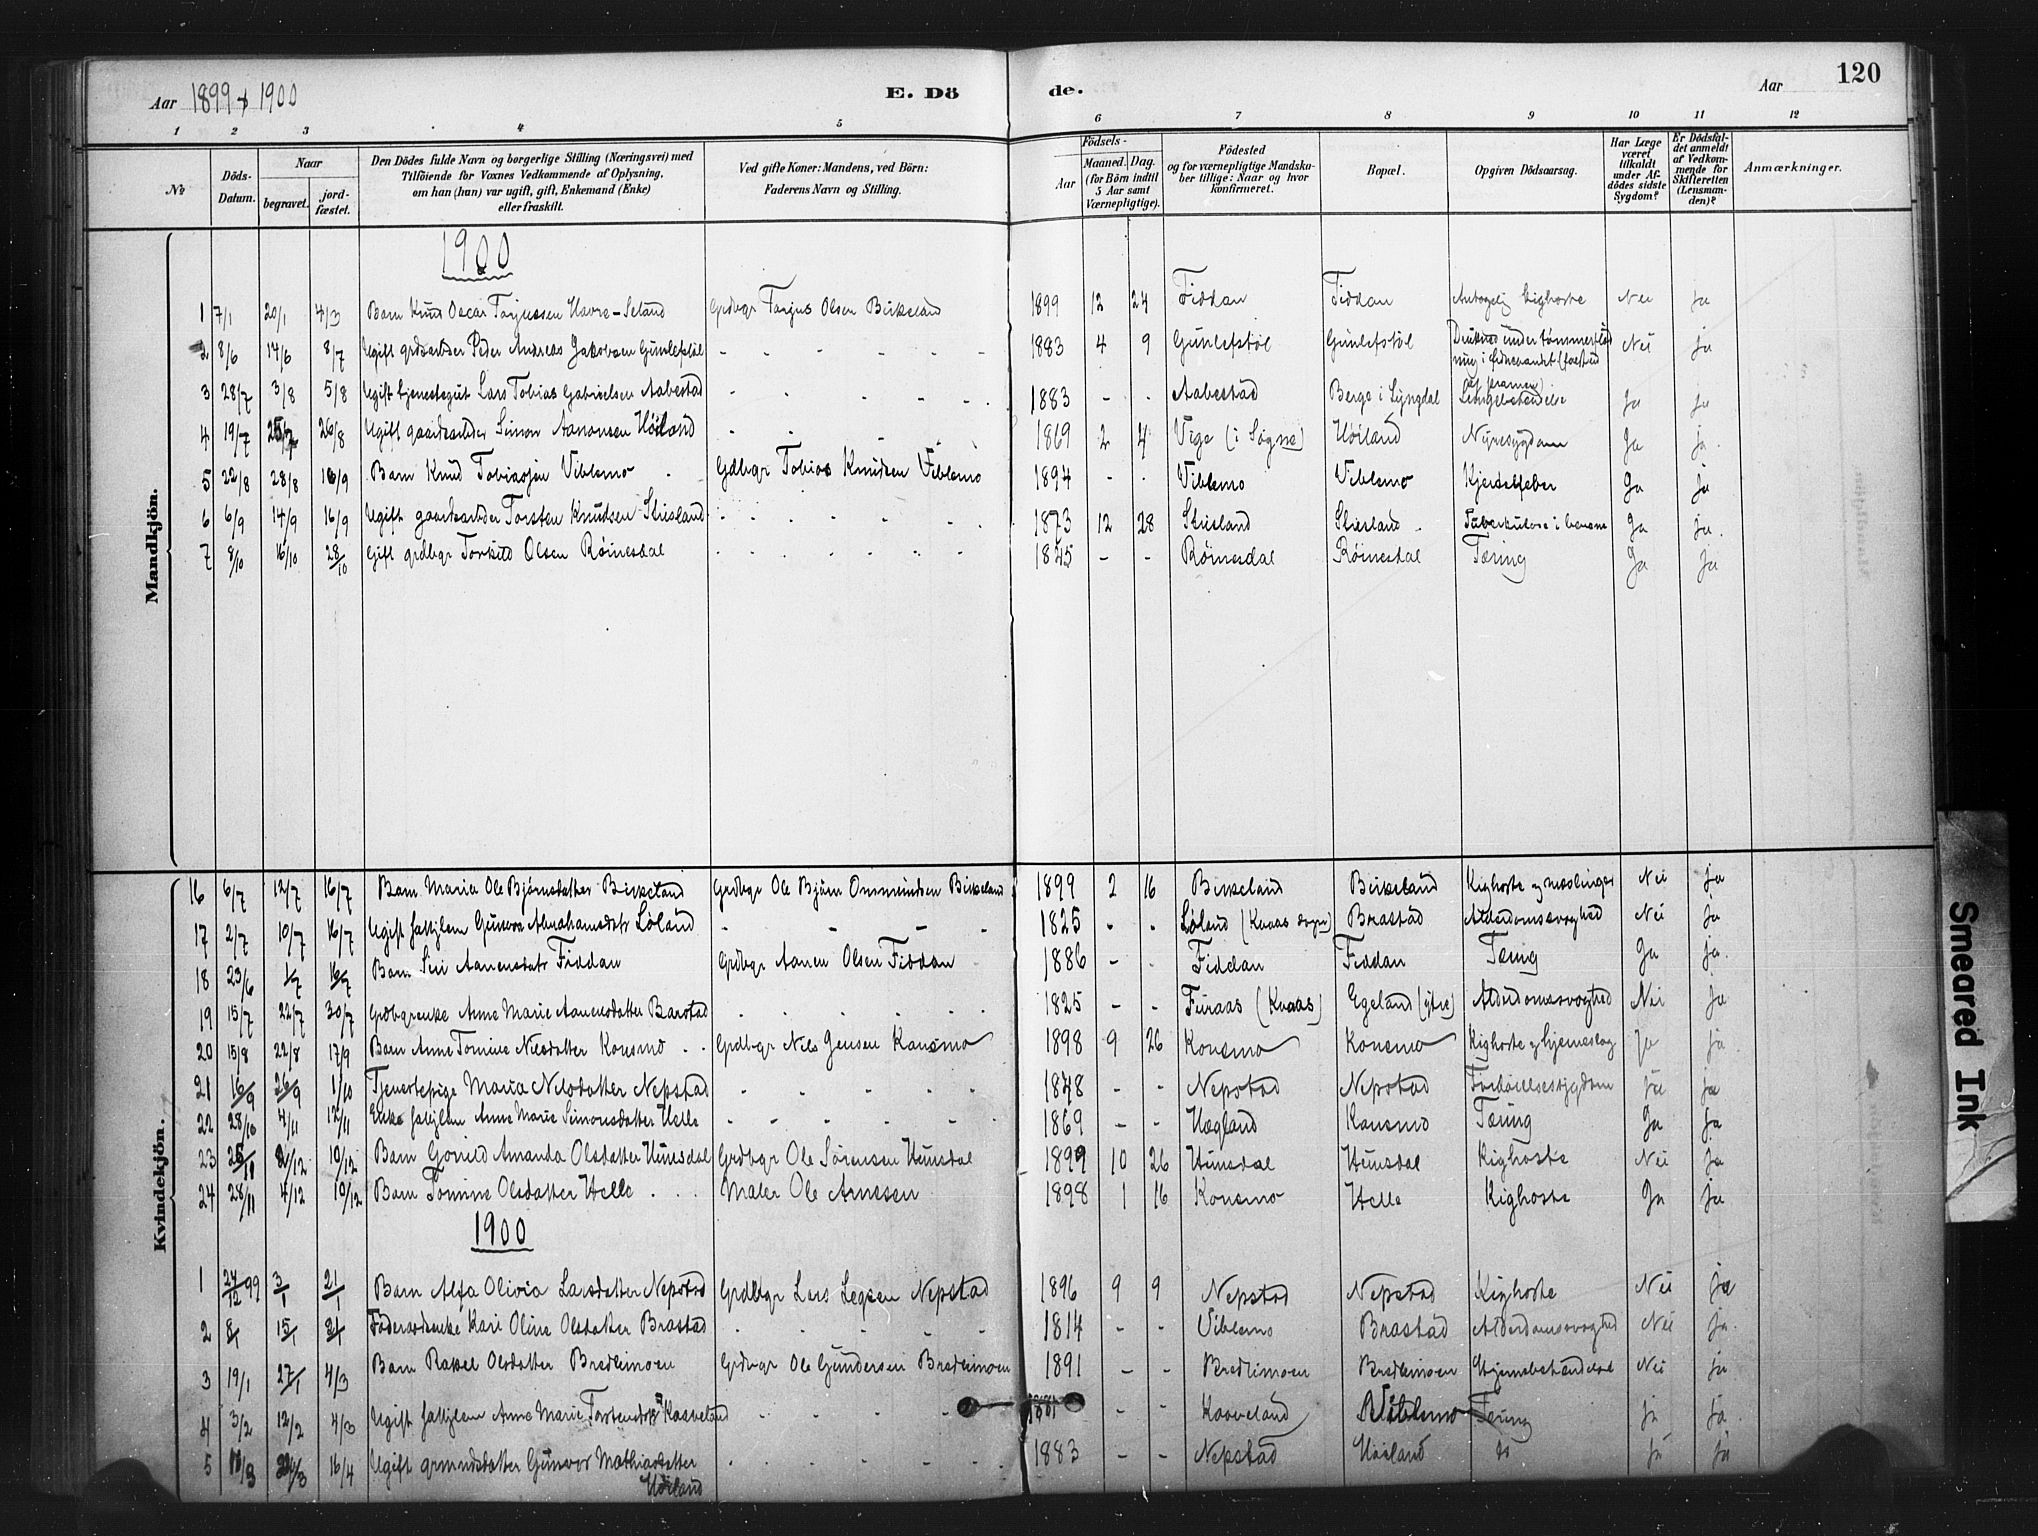 Aar 1899 & 1900 E. Dö de. Aar 120
1 2 3 4 5 6 7 8 9 10 11 12
No
Döds-Datum.
Naar
begravet.
jordfæstet.
Den Dödes fulde Navn og borgerlige Stilling (Næringsvei) med
Tilföiende for Voxnes Vedkommende af Oplysning,
om han (hun) var ugift, gift, Enkemand (Enke)
eller fraskilt.
Ved gifte Koner: Mandens, ved Börn:
Faderens Navn og Stilling.
Födsels-
Aar
Maaned. Dag.
(for Börn indtil
5 Aar samt
Værnepligtige).
Födested
og for værnepligtige Mandskaber tillige: Naar og hvor
konfirmeret.
Bopæl.
Opgiven Dödsaarsag.
Har Læge
været
tilkaldt
under Afdödes sidste
Sygdom?
Er Dödsfaldet anmeldt
af Vedkommende for
Skifteretten
(Lensmanden)?
Anmærkninger.
Mandkjön.
1900
1 7/1 20/1 4/3 Barn Knut Oscar Torjussen Havre-Seland Grdbgr Torjus Olsen Birkeland 1899 12 24 Fiddan Fiddan Antagelig Kighoste Nei ja
2 8/6 14/6 8/7 Ugift grdarbder Peder Andreas Jakobsen Gunlefstøl - - - - - - 1883 4 9 Gunlefstøl Gunlefstøl Druknet under tømmerfløtning i Nei ja
3 28/7 3/8 5/8 Ugift tjenestegut Lars Tobias Gabrielsen Aabestad - - - - - - 1883 - - Aabestad Berge i Lyngdal Lungebetændelse ja ja
4 19/7 26/8 Ugift gaardsarbder Simon Aanonsen Høiland - - - - - - 1869 2 4 Vige (i Søgne) Høiland Nyresygdom Ja ja.
5 22/8 28/8 16/9 Barn Knud Tobiassen Viblemo Gdbgr Tobias Knudsen Viblemo 1894 - - Viblemo Viblemo Kjertelfeber Ja ja
6 6/9 14/9 16/9 Ugift gaardsarbder Torsten Knudsen Stiesland - - - - - - 1873 12 28 Stiesland Stiesland Tuberkulose i Ja ja.
7 8/10 16/10 28/10 Gift grdbgr Torkild Olsen Røinesdal - - - - - - 1845 - - Røinesdal Røinesdal Tæring Ja ja
Kvindekjön.
16 6/7 12/7 16/7 Barn Maria Ole Bjørnsdatter Birkeland Grdbgr Ole Bjørn Ommundsen Birkeland 1899 2 16 Birkeland Birkeland Kighoste og meslinger Nei ja
17 2/7 10/7 16/7 Ugift fattiglem Gunvor Abrahamsdatr Løland - - - - 1825 - - Løland (Kvaas sogn) Brastad Alderdomssvaghed Nei ja
18 23/6 1/7 16/7 Barn Siri Aanensdatr Fiddan Grdbgr Aanen Olsen Fiddan 1886 - - Fiddan Fiddan Tæring Ja ja.
19 15/7 22/7 30/7 Grdbgrenke Anne Marie Aanensdatter Barstad - - - - - - 1825 - - Furaas (Kvaas) Egeland (ytre) Alderdomssvaghed Nei ja
20 15/8 22/8 17/9 Barn Anne Tomine Nilsdatter Konsmo Grdbgr Nils Jensen Konsmo 1898 9 26 Konsmo Konsmo Kighoste og hjerneslag Ja ja
21 16/9 26/9 1/10 Tjenestepige Maria Nilsdatter Nepstad - - - - - 1848 - - Nepstad Nepstad ja ja
22 28/10 4/11 12/11 Enke fattiglem Anne Marie Simonsdatter Helle - - - - - 1869 - - Hægland Konsmo Tæring Ja ja
23 25/11 2/12 10/12 Barn Gonild Amanda Olsdatter Hunsdal Grdbgr Ole Sørensen Hunsdal 1899 10 26 Hunsdal Hunsdal Kighoste Nei Ja
24 28/11 4/12 19/12 Barn Tomine Olsdatter Helle Maler Ole Arnesen 1898 1 16 Konsmo Helle Kighoste Ja ja
1900
1 24/12 99 3/1 21/1 Barn Alfa Olivia Larsdatter Nepstad Grdbgr Lars Nepstad 1896 9 9 Nepstad Nepstad Kighoste Nei ja
2 8/1 15/1 21/1 Føderaadsenke Kari Oline Olsdatter Brastad - - - - - 1814 - - Viblemo Brastad Alderdomssvaghed Nei ja.
3 19/1 27/1 4/3 Barn Rakel Olsdatter Bredlimoen Grdbgr Ole Gundersen Bredlimoen 1891 - - Bredlimoen Bredlimoen Hjernebetændelse Nei ja
4 3/2 12/2 4/3 Ugift fattiglem Anne Marie Torstensdtr Kaaveland - - - - Kaaveland Viblemo Tæring ja ja.
5 16/4 Ugift grmandsdatter Gunvor Mathiasdatter Høiland - - - - - - 1883 - - Nepstad Høiland do ja ja
Smeared Ink